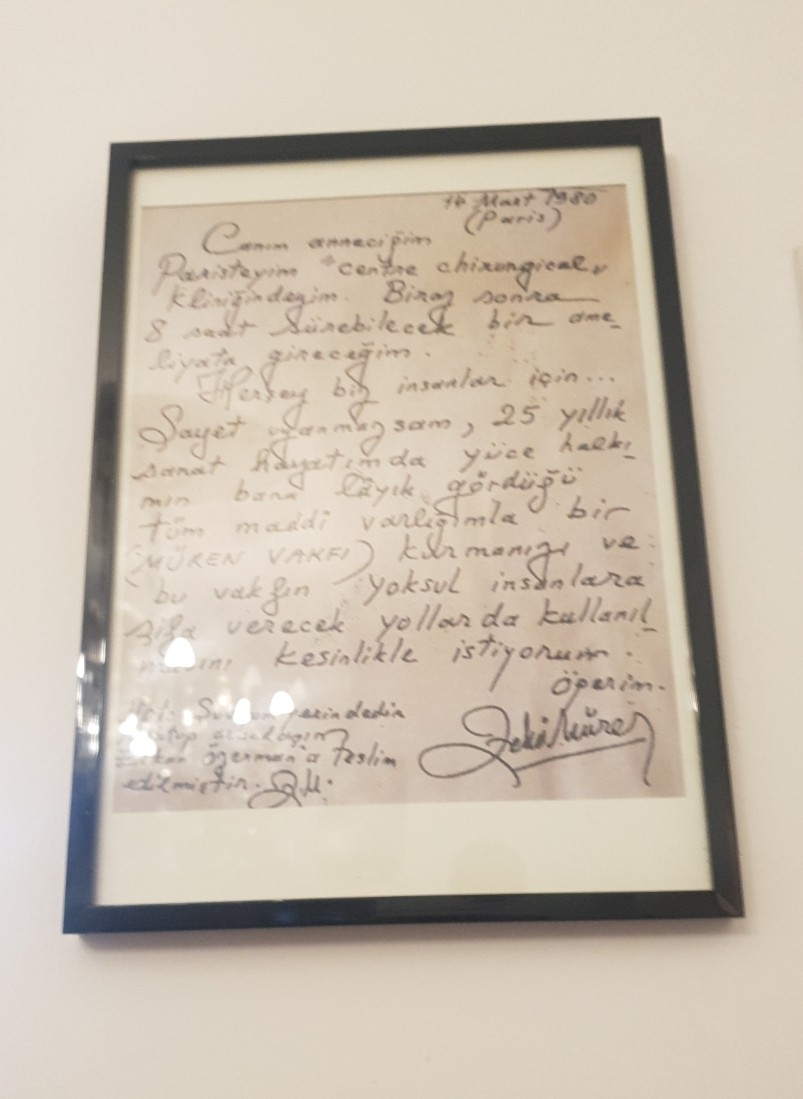 Mart 1980
(Paris)
Canım anneciğim
Paristeyim "centre chirurgical"
Kliniğindeyim. Biraz sonra
8 saat sürebilecek bir ame_
liyata gireceğim.
Herşey biz insanlar için...
Şayet uyanmazsam, 25 yıllık
sanat hayatımda yüce halkı_
mın bana lâyık gördüğü
tüm maddî varlığımla bir
(MÜREN VAKFI) kurmanızı ve
bu vakfın yoksul insanlara
şifa verecek yollarda kullanıl_
masını kesinlikle istiyorum.
öperim.
Zeki Müren
Not:
Erkan Özerman'a teslim
edilmiştir. Z.M.